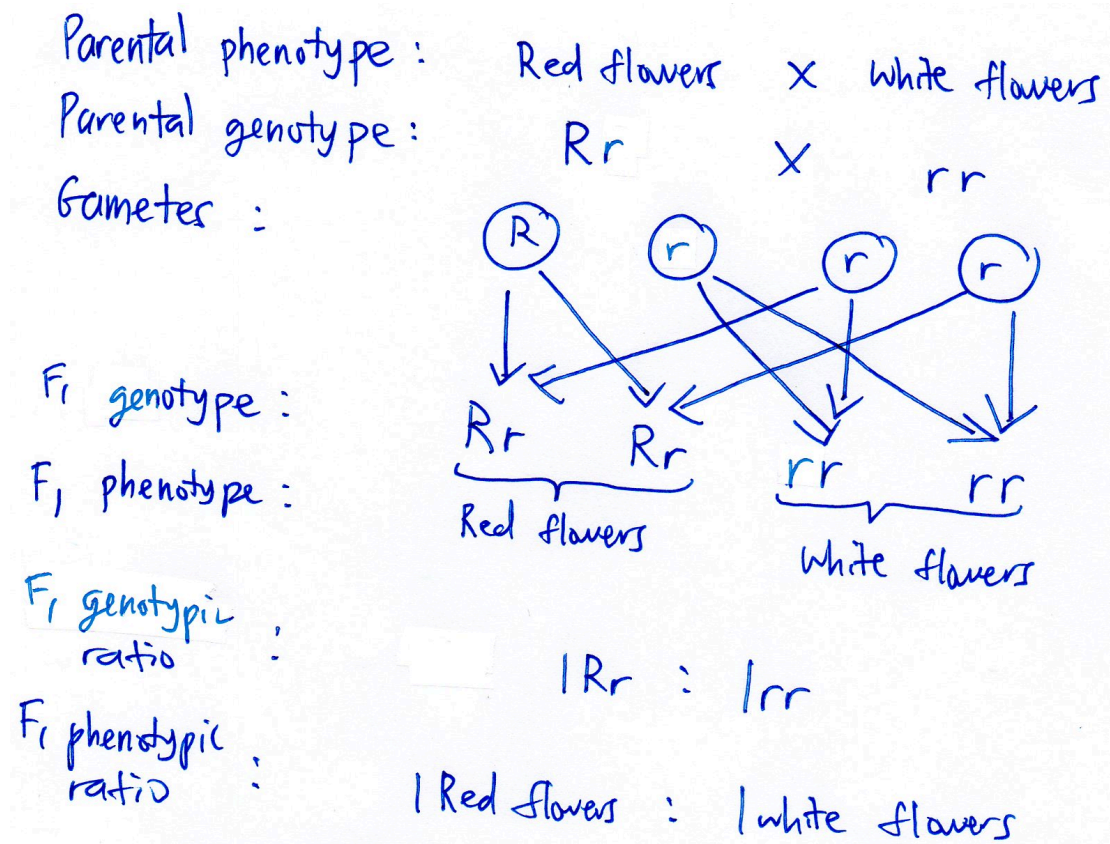 Parental phenotype : Red flowers X White flowers
Parental genotype : Rr X rr
Gametes : R r r r
F1 genotype : Rr Rr rr rr
F1 phenotype : Red flowers White flowers
F1 genotypic
ratio : 1Rr : 1rr
F1 phenotypic
ratio : 1 Red flowers : 1 white flowers